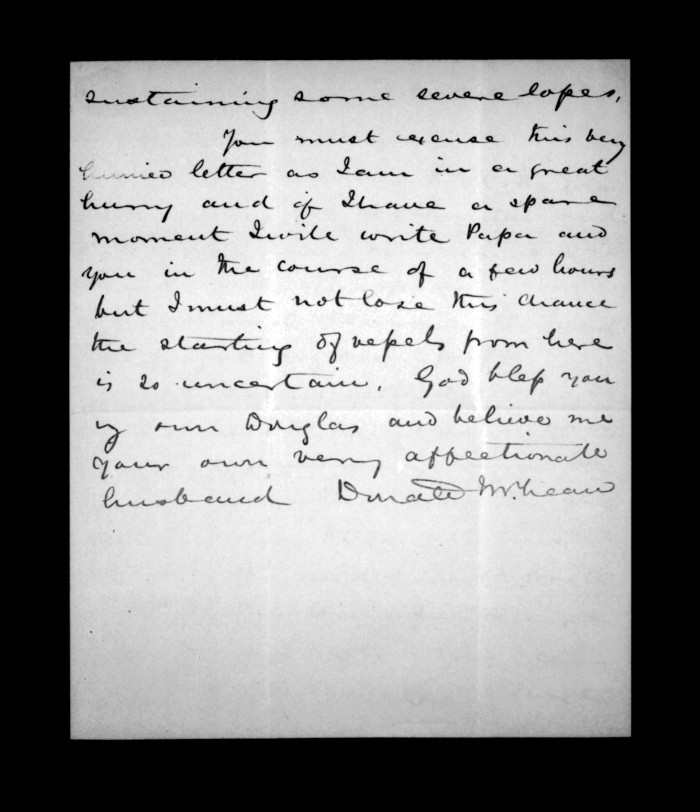 sustaining some severe losses,
You must excuse this very
hurried letter as I am in a great
hurry and if I have a spare
moment I will write Papa and
you in the course of a few hours
but I must not lose this chance
the starting of vessels from here
is so uncertain. God bless you
my own Douglas and believe me
your own very affectionate
husband Donald McLean